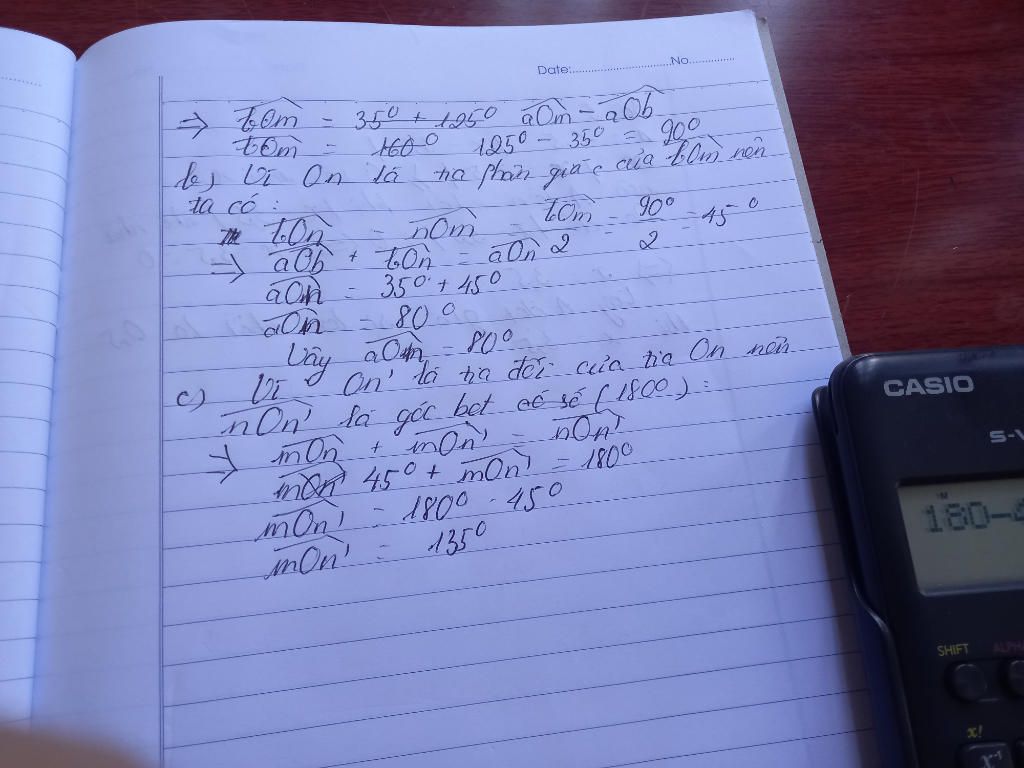 Date:..............................No..............
⇒ bOm = 35° + 125° aOm - aOb
bOm = 160° 125° - 35° = 90°
b) Vì On là tia phân giác của bOm nên
ta có :
bOn = nOm = bOm/2 = 90°/2 = 45°
⇒ aOb + bOn = aOn
aOn = 35° + 45°
aOn = 80°
Vậy aOn = 80°
c) Vì On' là tia đối của tia On nên
nOn' là góc bẹt có số (180°) :
⇒ mOn + mOn' = nOn'
mOn' 45° + mOn' = 180°
mOn' = 180° - 45°
mOn' = 135°
CASIO
S-V
M
180-4
SHIFT ALPHA
x!
x⁻¹